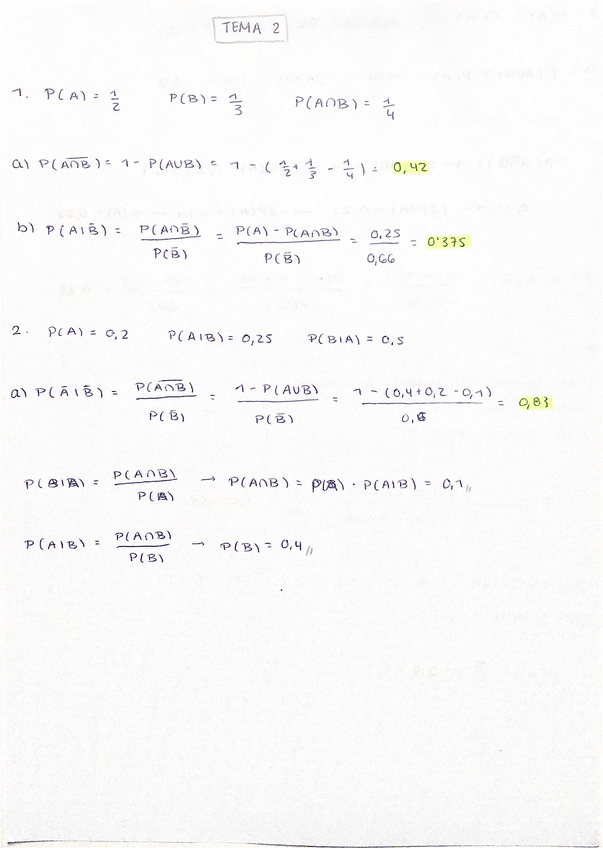 TEMA 2
1. P(A) = 1/2 P(B) = 1/3 P(A∩B) = 1/4
a) P(A̅∩̅B̅) = 1 - P(A∪B) = 1 - (1/2 + 1/3 - 1/4) = 0,42
b) P(A|B̅) = P(A∩B̅)/P(B̅) = P(A) - P(A∩B)/P(B̅) = 0,25/0,66 = 0'375
2. P(A) = 0,2 P(A|B) = 0,25 P(B|A) = 0,5
a) P(A̅|B̅) = P(A̅∩̅B̅)/P(B̅) = 1 - P(A∪B)/P(B̅) = 1 - (0,4+0,2-0,1)/0,6 = 0,83
P(B|A) = P(A∩B)/P(A) → P(A∩B) = P(A) · P(A|B) = 0,1//
P(A|B) = P(A∩B)/P(B) → P(B) = 0,4//